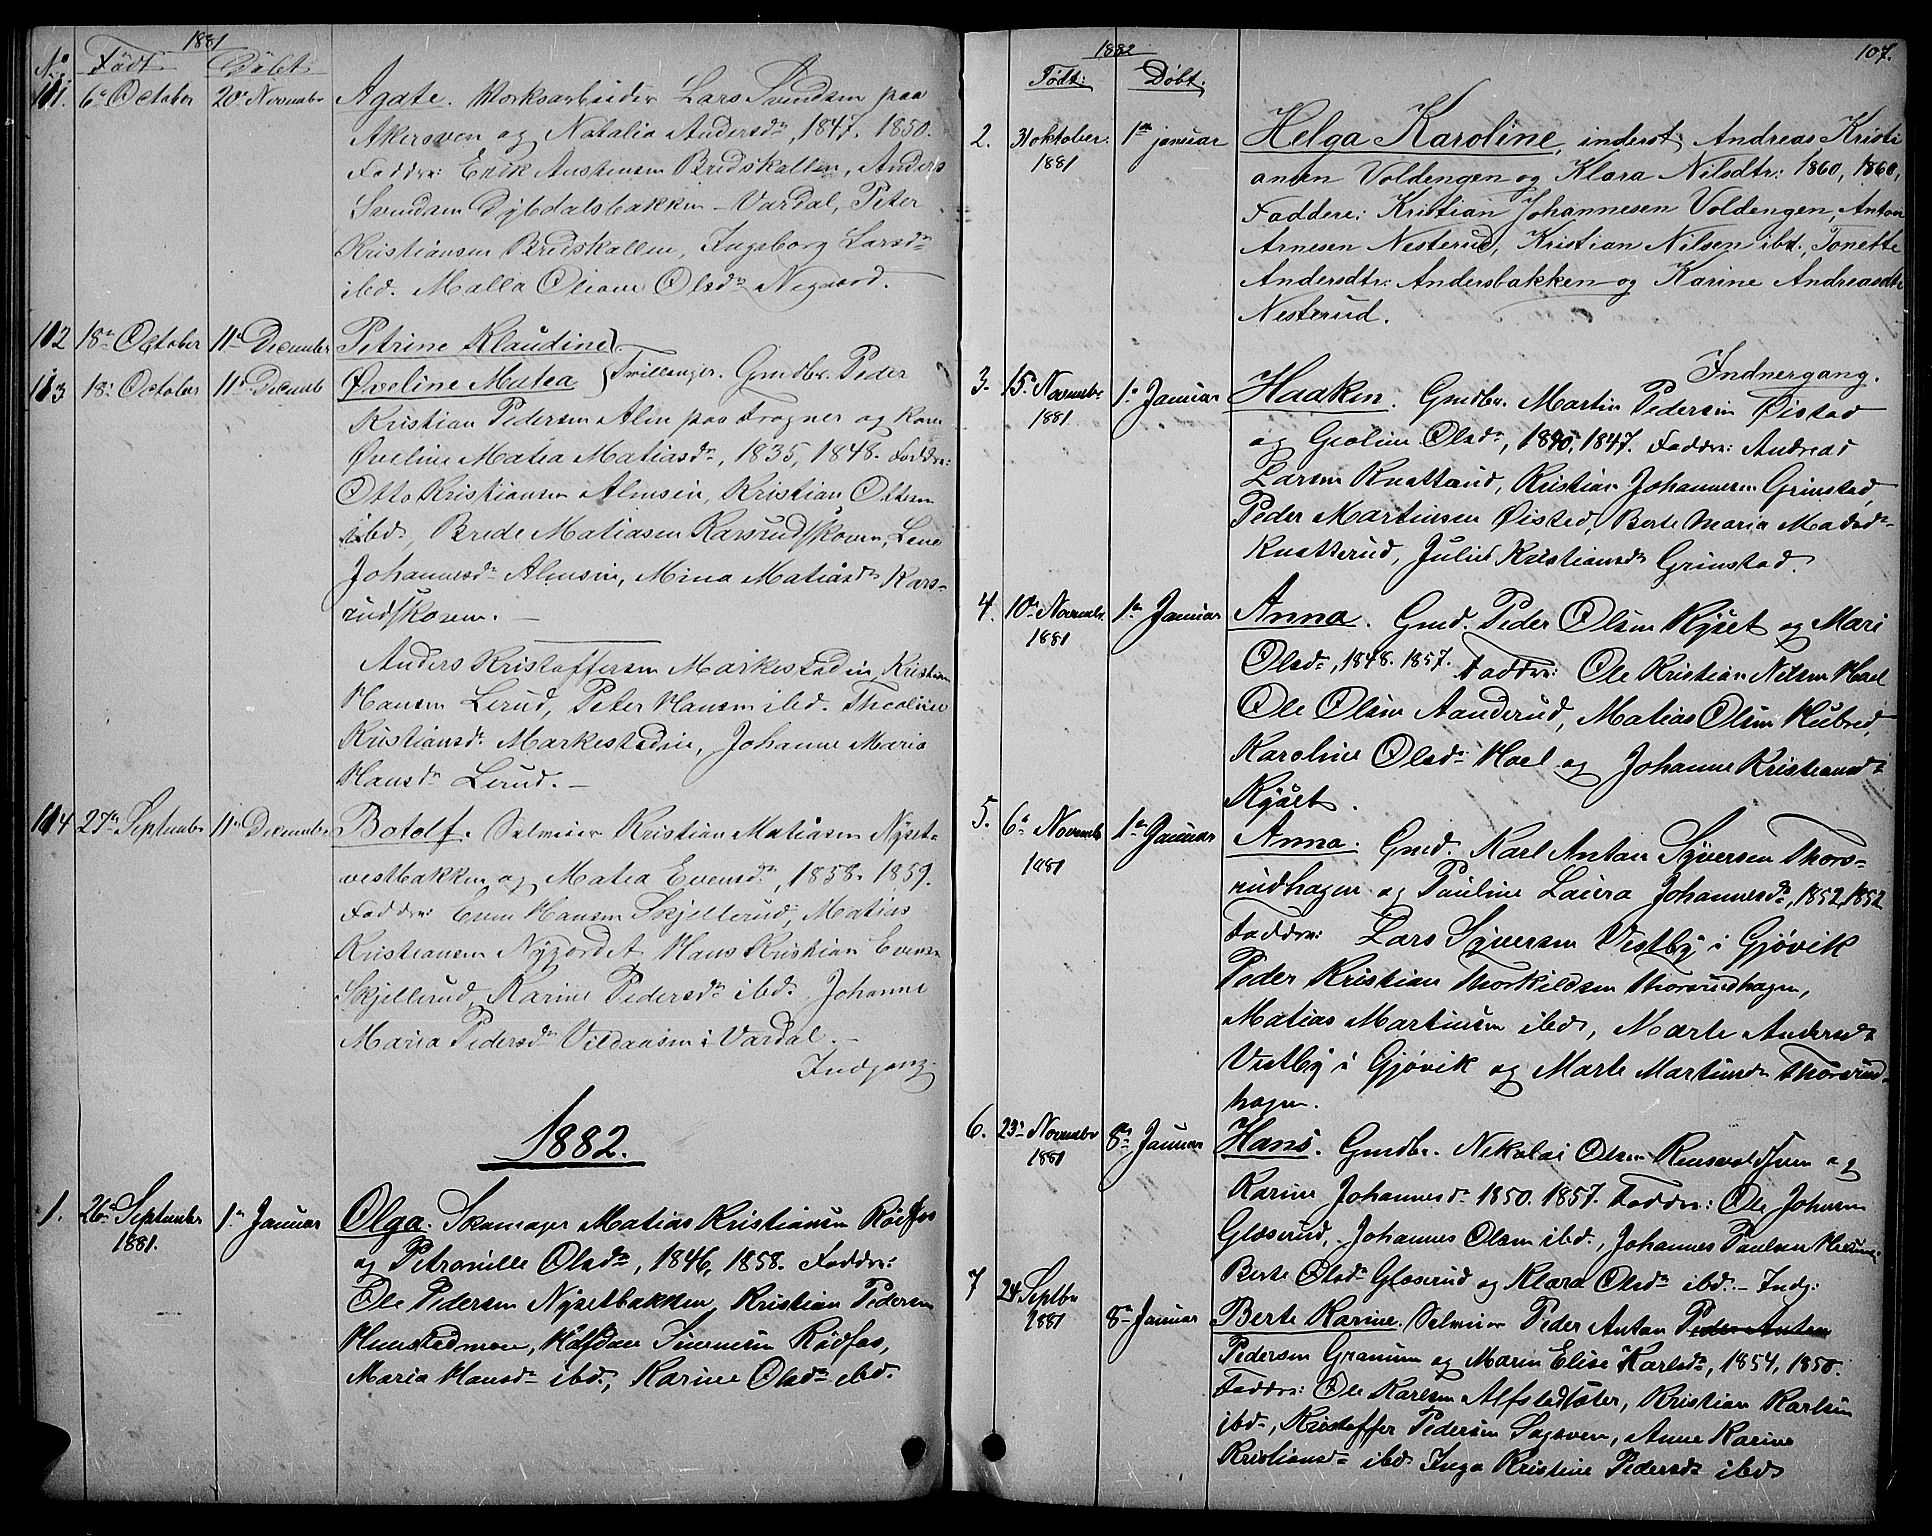 1881
No Født Døbt
111. 6te October 20de Novembr Agate. Værksarbeider Lars Svendsen paa
Akersveen og Natalia Andersdr, 1847. 1850.
Faddre: Erik Austensen Bredskallen, Anders
Svendsen Dybdalsbakken - Vardal, Peter
Kristiansen Bredskallen, Ingeborg Larsdr
ibd. Malla Oliane Olsdr Nygaard.
112 18de October 11te December Petrine Klaudine
113 18de October 11te Decemb Øveline Matea } Tvillinger. Gmdbr. Peder
Kristian Pedersen Alm paa Fragner og Kone
Øveline Matea Matiasdr, 1835, 1848. Faddre:
Otto Kristiansen Almseie, Kristian Ottesen
ibd, Brede Matiasen Karsrudskoven, Lene
Johannesdr Almseie, Mina Matiasdr Kars-
rudskoven. -
Anders Kristoffersen Markestadeie, Kristian
Hansen Lerud, Peter Hansen ibd. Theoline
Kristiansdr. Markestadeie, Johanne Maria
Hansdr Lerud. -
114 27de Septembr 11te December Botolf. Selveier Kristian Matiasen Nyset-
vestbakken og Matea Evensdr, 1858. 1859.
Faddre: Even Hansen Skjellerud, Matias
Kristiansen Nygordet, Hans Kristian Evensen
Skjellerud, Karine Pedersdr ibd. Johanne
Maria Pedersdr Vildaasen i Vardal. -
Indgang
1882.
1. 26de September 1ste Januar Olga. Skomager Matias Kristiansen Rødfos
1881. og Petronille Olsdr, 1846, 1858. Faddre:
Ole Pedersen Nysetbakken, Kristian Pedersen
Hunstadmoen, Halfdan Simensen Rødfos,
Maria Hansdr ibd., Karine Olsdr ibd.
1882 107.
Født: Døbt.
2. 31 oktober 1ste januar Helga Karoline, inderst Andreas Kristi
1881 ansen Voldengen og Klara Nilsdtr: 1860, 1860,
Faddere: Kristian Johannesen Voldengen, Anton
Arnesen Nesterud, Kristian Nilsen ibd., Tonette
Andersdtr: Andersbakken og Karine Andreasdtr
Nesterud.
Indnergang.
3. 15de Novembr 1ste Januar Haaken. Gmdbr. Martin Pedersen Øistad
1881 og Geoline Olsdr, 1840, 1847. Faddre: Andreas
Larsen Knatterud, Kristian Johannesen Grinstad,
Peder Martinsen Øisted, Berte Maria Madsdr
Knatterud, Julie Kristiansdr Grinstad.
4. 10de Novembr 1ste Januar Anna. Gmd. Peder Olsen Kyset og Mari
1881 Olsdr, 1848. 1857. Faddre: Ole Kristian Nilsen Hoel
Ole Olsen Aanderud, Matias Olsen Hubred,
Karoline Olsdr Hoel og Johanne Kristiansdr
Kyset.
5. 6te Novembr 1ste Januar Anna. Gmd. Karl Anton Syversen Thors-
1881 rudhagen og Pauline Laura Johannesdr, 1852, 1852
Faddre: Lars Syversen Vestby i Gjøvik
Peder Kristian Thorkildsen Thorsrudhagen,
Matias Martinsen ibd, Marte Andersdr
Vestby i Gjøvik og Marte Martinsdr Thorsrud-
hagen.
6. 23de Novembr 8de Januar Hans. Gmdbr. Nikolai Olsen Rensvoldsveen og
1881 Karine Johannesdr 1850. 1857. Faddre: Ole Johnsen
Glæserud, Johannes Olsen ibd., Johannes Paulsen
Berte Olsdr Glæserud og Klara Olsdr ibd. - Indg:
7 24 Septbr 8de Januar Berte Karine. Selveier Peder Anton Peder Anton
1881 Pedersen Granum og Maren Elise Karlsdr, 1854, 1850.
Faddre: Ole Karlsen Alfstadsæter, Kristian Karlsen
ibd, Kristoffer Pedersen Sagsveen, Anne Karine
Kristiansdr ibd. Inga Kristine Pedersdr ibd